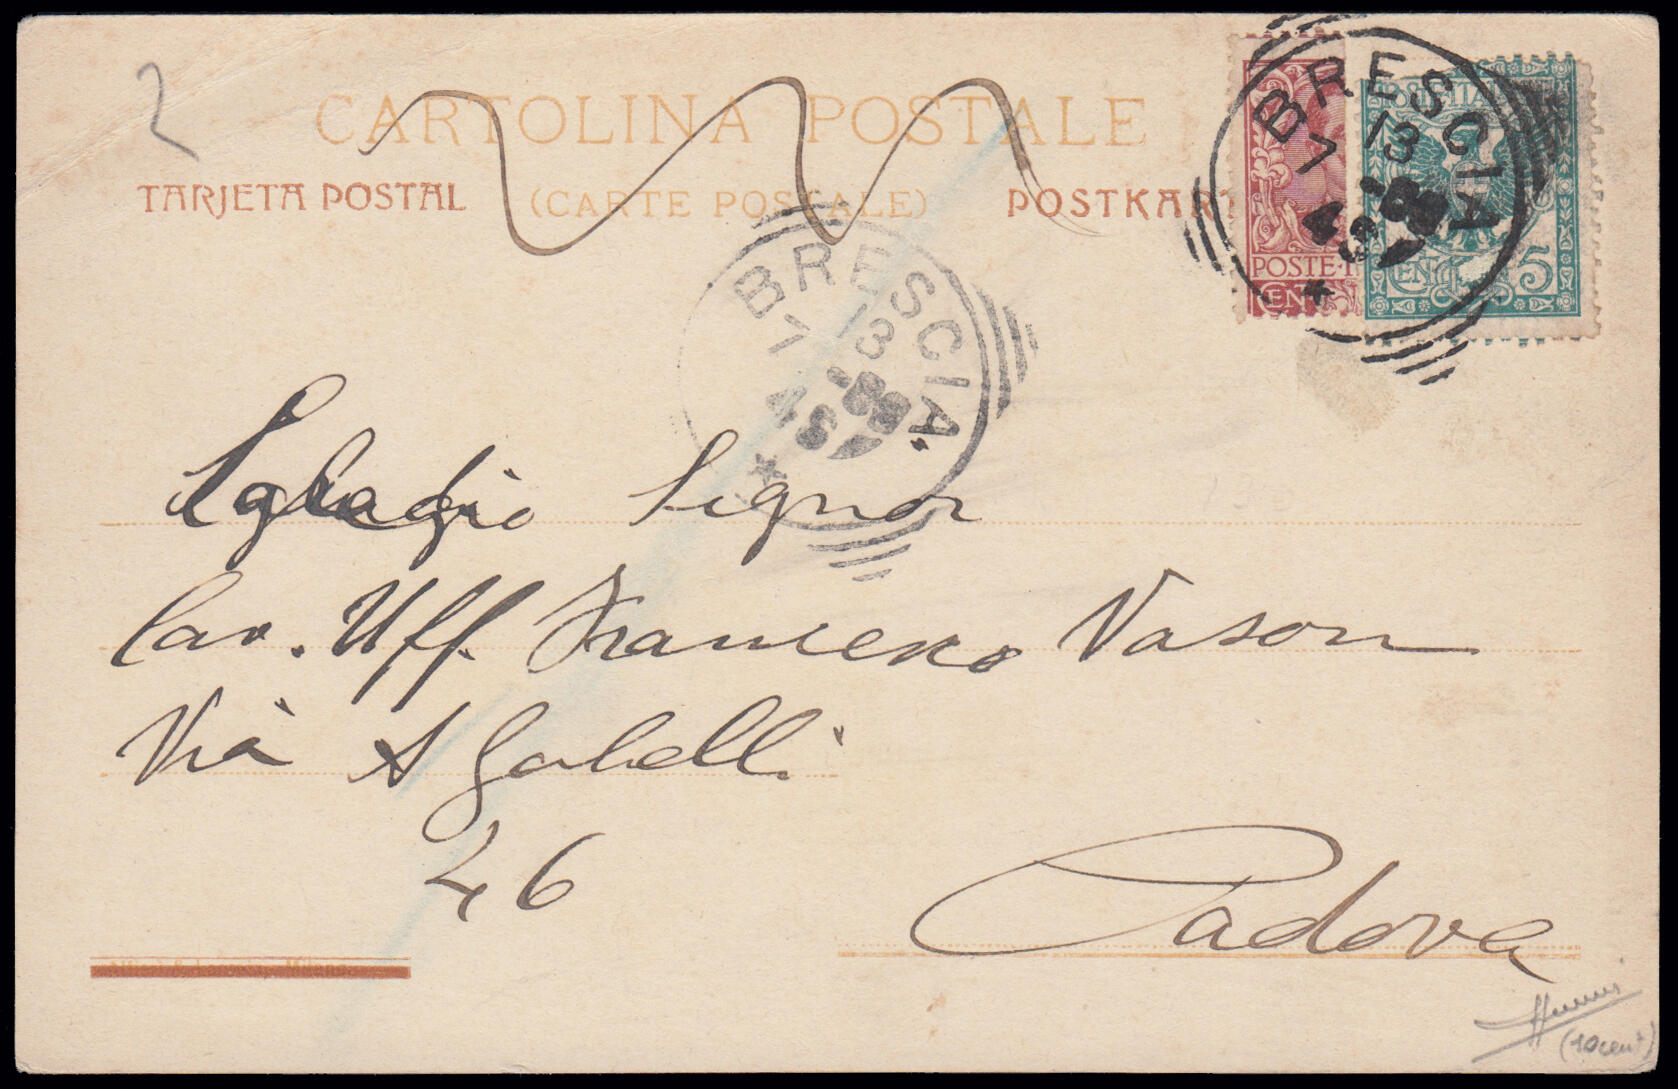 2
CARTOLINA POSTALE
TARJETA POSTAL (CARTE POSTALE) POSTKART
POSTE I
CEN
POSTE ITAL
CEN 5
BRESCIA
7 13
BRESCIA
7 13
Egregio Signor
Cav. Uff. Francesco Vason
Via A Gabelli
46
Padova
Milano
(10 cent)